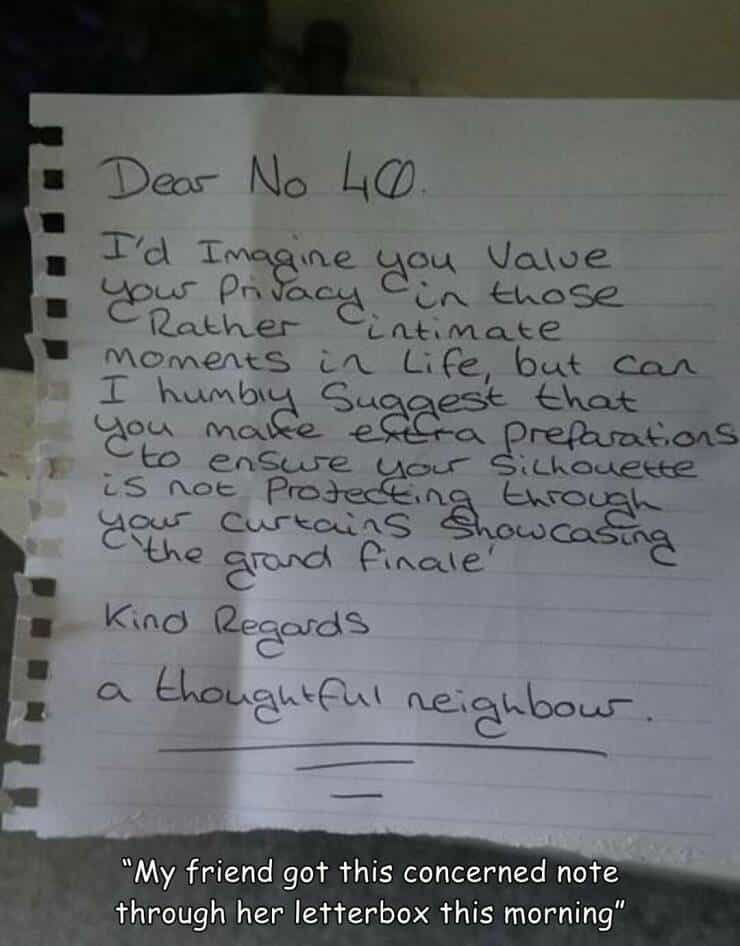 Dear No 40.
I'd Imagine you Value
your Privacy in those
Rather intimate
moments in Life, but can
I humbly Suggest that
you make extra preparations
to ensure your Silhouette
is not Protecting through
your curtains Showcasing
'the grand finale'
Kind Regards
a thoughtful neighbour.
"My friend got this concerned note
through her letterbox this morning"